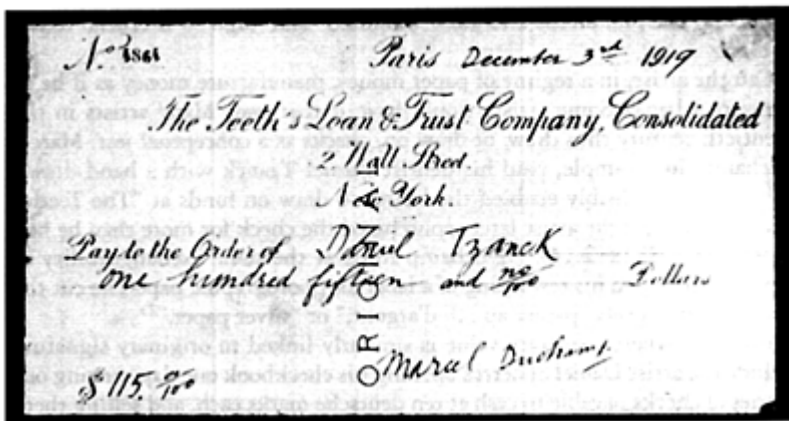 No 1861 Paris December 3rd 1919
The Teeth's Loan & Trust Company, Consolidated
2 Wall Street.
New York.
Pay to the Order of Daniel Tzanck
one hundred fifteen and no/100 Dollars
$ 115. 00/100 Marcel Duchamp
ORIGINAL